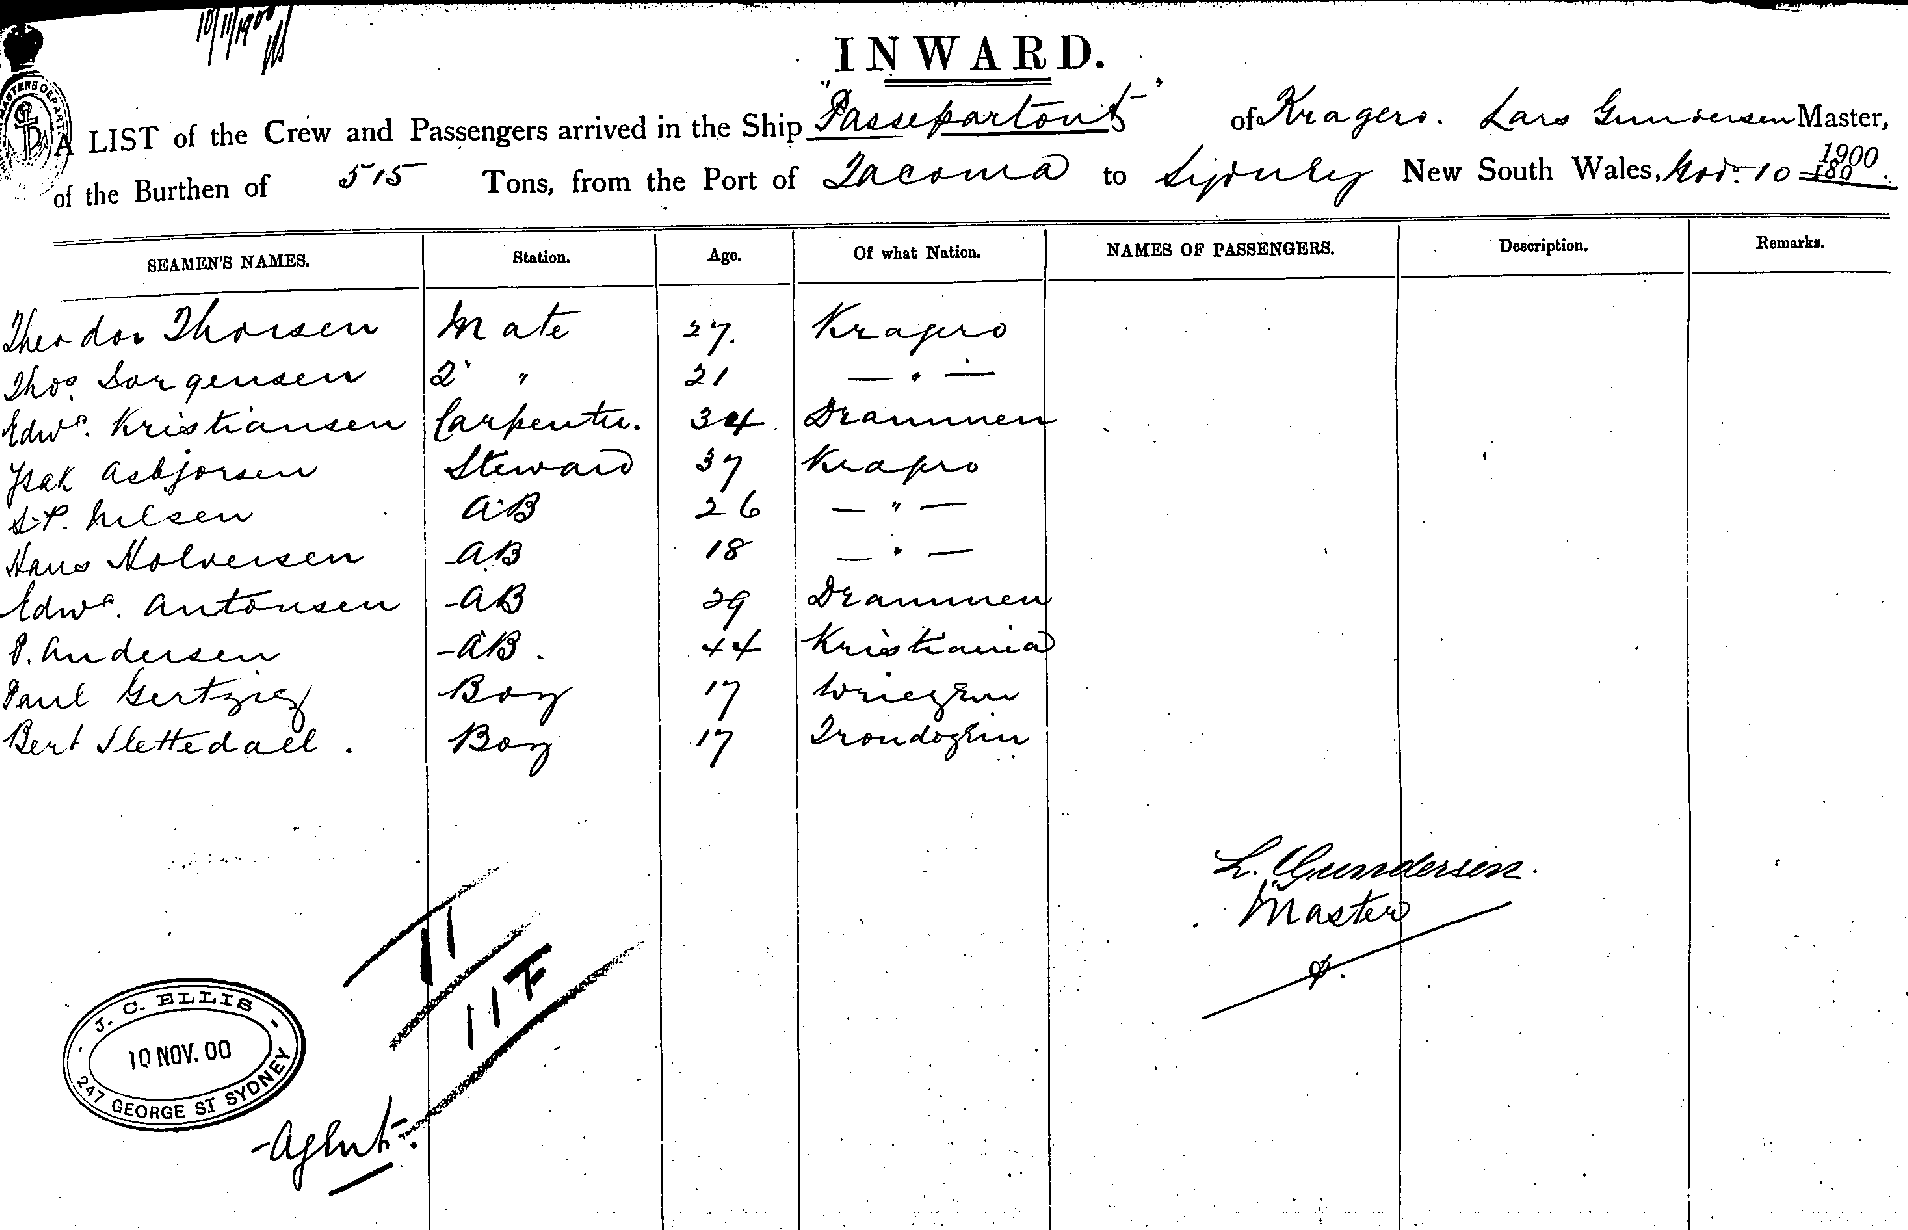 10/11/1900
INWARD.
A LIST of the Crew and Passengers arrived in the Ship "Passepartout" of Kragero. Lars Gundersen Master,
of the Burthen of 515 Tons, from the Port of Tacoma to Sydney New South Wales, Nov. 10 1900 180 .
SEAMEN'S NAMES. Station. Age. Of what Nation. NAMES OF PASSENGERS. Description. Remarks.
Theodor Thorsen Mate 27. Kragero
Thos. Jorgensen 2 " 21 — " —
Edwd. Kristiansen Carpenter. 34 Drammen
Isak Asbjorsen Steward 37 Kragero
S.P. Nilsen AB 26 — " —
Hans Holversen AB 18 — " —
Edwd. Antonsen AB 29 Drammen
P. Andersen AB. 44 Kristiania
Paul Gertzig Boy 17 Wriezen
Bert Slettedall. Boy 17 Trondgein
L. Gundersen.
Master
11
11 F
J. C. ELLIS
10 NOV. 00
247 GEORGE ST SYDNEY
Agent.